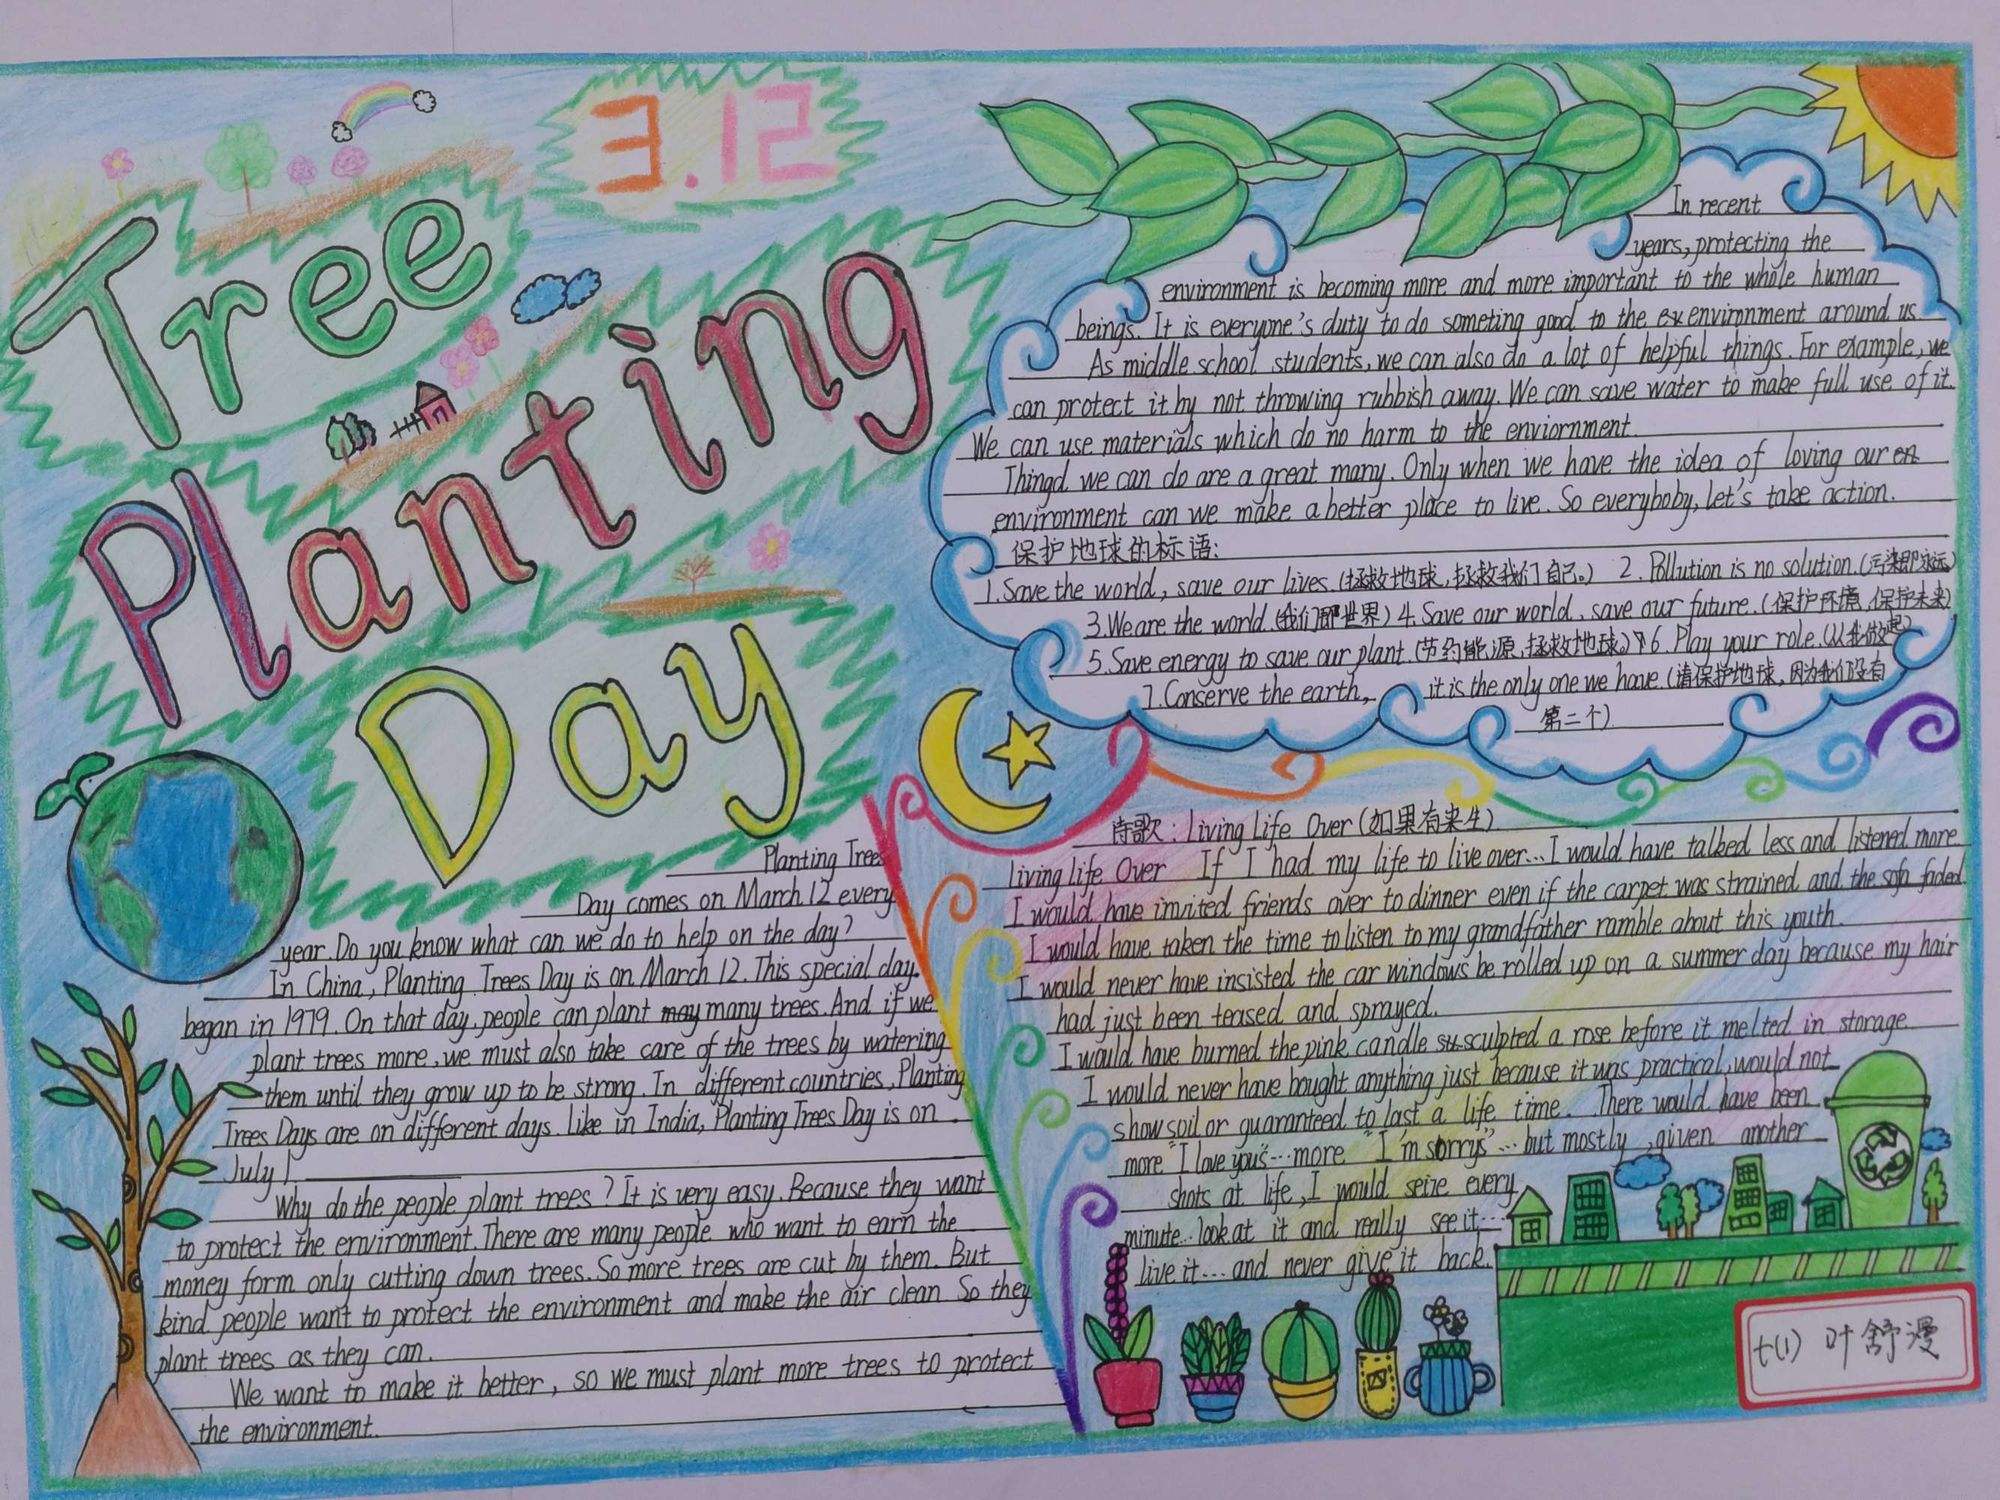 3.12
Tree
Planting
Day
Planting Trees
Day comes on March 12 every
year. Do you know what can we do to help on the day?
In China, Planting Trees Day is on March 12. This special day.
began in 1979. On that day, people can plant may many trees. And if we
plant trees more, we must also take care of the trees by watering
them until they grow up to be strong. In different countries, Planting
Trees Days are on different days. like in India, Planting Trees Day is on
July 1.
Why do the people plant trees? It is very easy. Because they want
to protect the environment. There are many people who want to earn the
money form only cutting down trees. So more trees are cut by them. But
kind people want to protect the environment and make the air clean So they
plant trees as they can.
We want to make it better, so we must plant more trees to protect
the environment.
In recent
years, protecting the
environment is becoming more and more important to the whole human
beings. It is everyone's duty to do someting good to the ex environment around us
As middle school students, we can also do a lot of helpful things. For example, we
can protect it by not throwing rubbish away. We can save water to make full use of it.
We can use materials which do no harm to the enviornment.
Thingd we can do are a great many. Only when we have the idea of loving our en
environment can we make a better place to live. So everyboby, let's take action.
保护地球的标语:
1. Save the world, save our lives. (拯救地球, 拯救我们自己。) 2. Pollution is no solution. (污染即永远)
3. We are the world. (我们即世界) 4. Save our world, save our future. (保护环境, 保护未来)
5. Save energy to save our plant. (节约能源, 拯救地球。) 6. Play your role. (从我做起)
7. Conserve the earth, it is the only one we have. (请保护地球, 因为我们没有
第二个)
诗歌: Living Life Over (如果有来生)
living life Over If I had my life to live over... I would have talked less and listened more
I would have invited friends over to dinner even if the carpet was strained and the sofa faded.
I would have taken the time to listen to my grandfather ramble about this youth.
I would never have insisted the car windows be rolled up on a summer day because my hair
had just been teased and sprayed.
I would have burned the pink candle su sculpted a rose before it melted in storage.
I would never have bought anything just because it was practical, would not
show soil or guaranteed to last a life time. There would have been
more "I love yous"... more "I'm sorrys"... but mostly, given another
shots at life, I would seize every
minute... look at it and really see it...
live it... and never give it back.
七(1) 叶舒漫